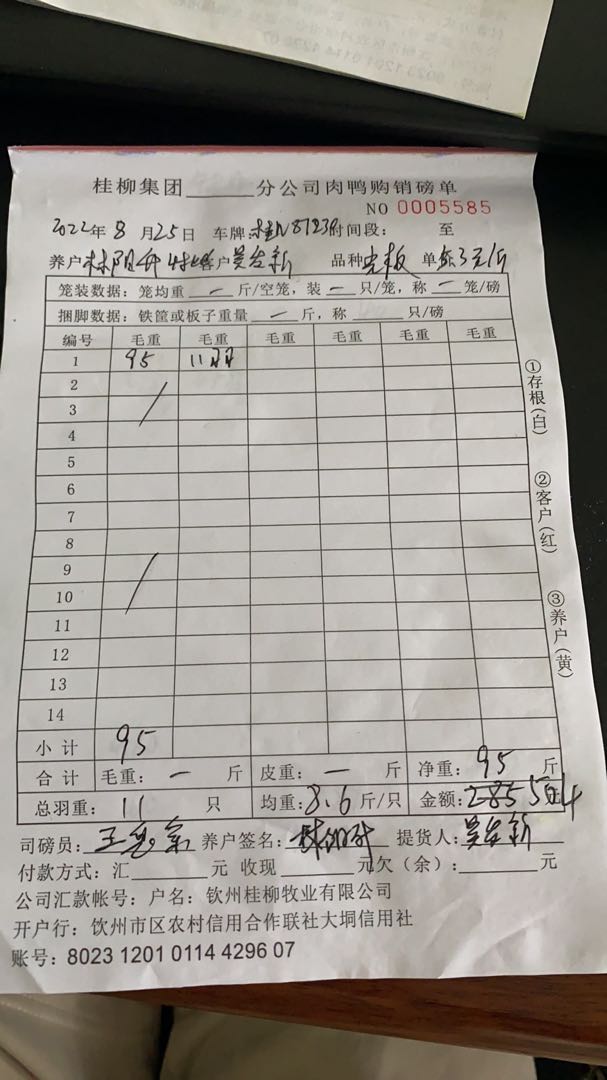 桂柳集团______分公司肉鸭购销磅单
NO 0005585
2022年8月25日 车牌: 时间段: 至
养户 林阳升 客户 吴发新 品种 单价3元/斤
笼装数据: 笼均重 一 斤/空笼, 装 一 只/笼, 称 一 笼/磅
捆脚数据: 铁筐或板子重量 一 斤, 称 只/磅
编号 毛重 毛重 毛重 毛重 毛重 毛重
1 95 11只
2
3
4
5
6
7
8
9
10
11
12
13
14
小计 95
合计 毛重: 一 斤 皮重: 一 斤 净重: 95 斤
总羽重: 11 只 均重: 8.6 斤/只 金额: 285
司磅员: 养户签名: 提货人: 吴发新
付款方式: 汇______元 收现______元欠(余):______元
公司汇款帐号: 户名: 钦州桂柳牧业有限公司
开户行: 饮州市区农村信用合作联社大垌信用社
账号: 8023 1201 0114 4296 07
①存根(白)
②客户(红)
③养户(黄)